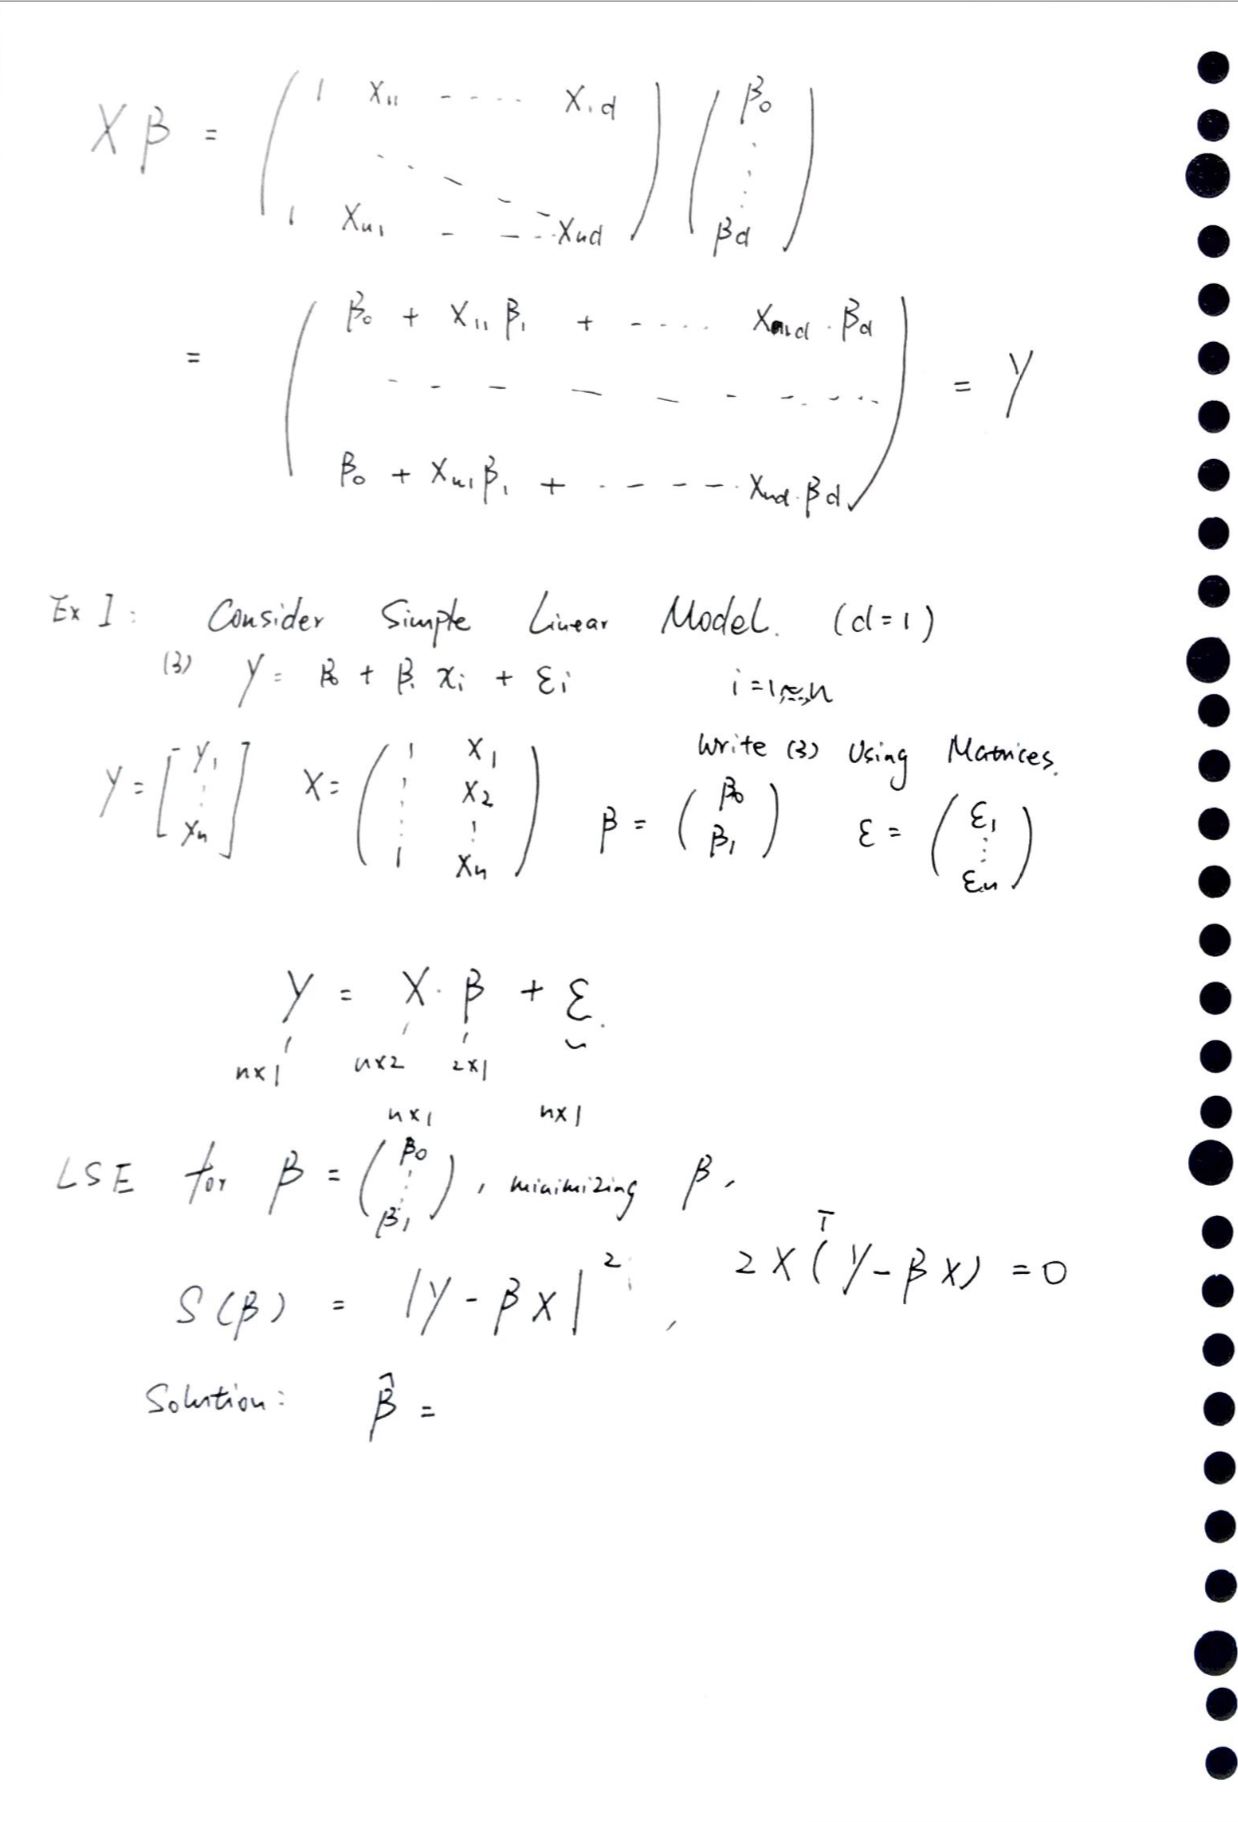 Xβ = ( 1 X₁₁ - - - - X₁d ) ( β₀
. . - - - - ⋮
1 Xn₁ - - - - Xnd ) βd )
= ( β₀ + X₁₁ β₁ + - - - - X₁d · βd
- - - - - - - - - - = Y
β₀ + Xn₁β₁ + - - - - - Xnd · βd )
Ex 1: Consider Simple Linear Model. (d=1)
(3) Y = β₀ + β₁ xᵢ + εᵢ i = 1, ..., n
Write (3) Using Matrices.
Y = [ Y₁ ⋮ Xn ] X = ( 1 X₁ ⋮ X₂ ⋮ 1 Xn ) β = ( β₀ β₁ ) ε = ( ε₁ ⋮ εn )
Y = X · β + ε.
n×1 n×2 2×1
n×1 n×1
LSE for β = ( β₀ ⋮ β₁ ), minimizing β,
S(β) = |Y - βX|², 2X(Y - βX)ᵀ = 0
Solution: β̂ =